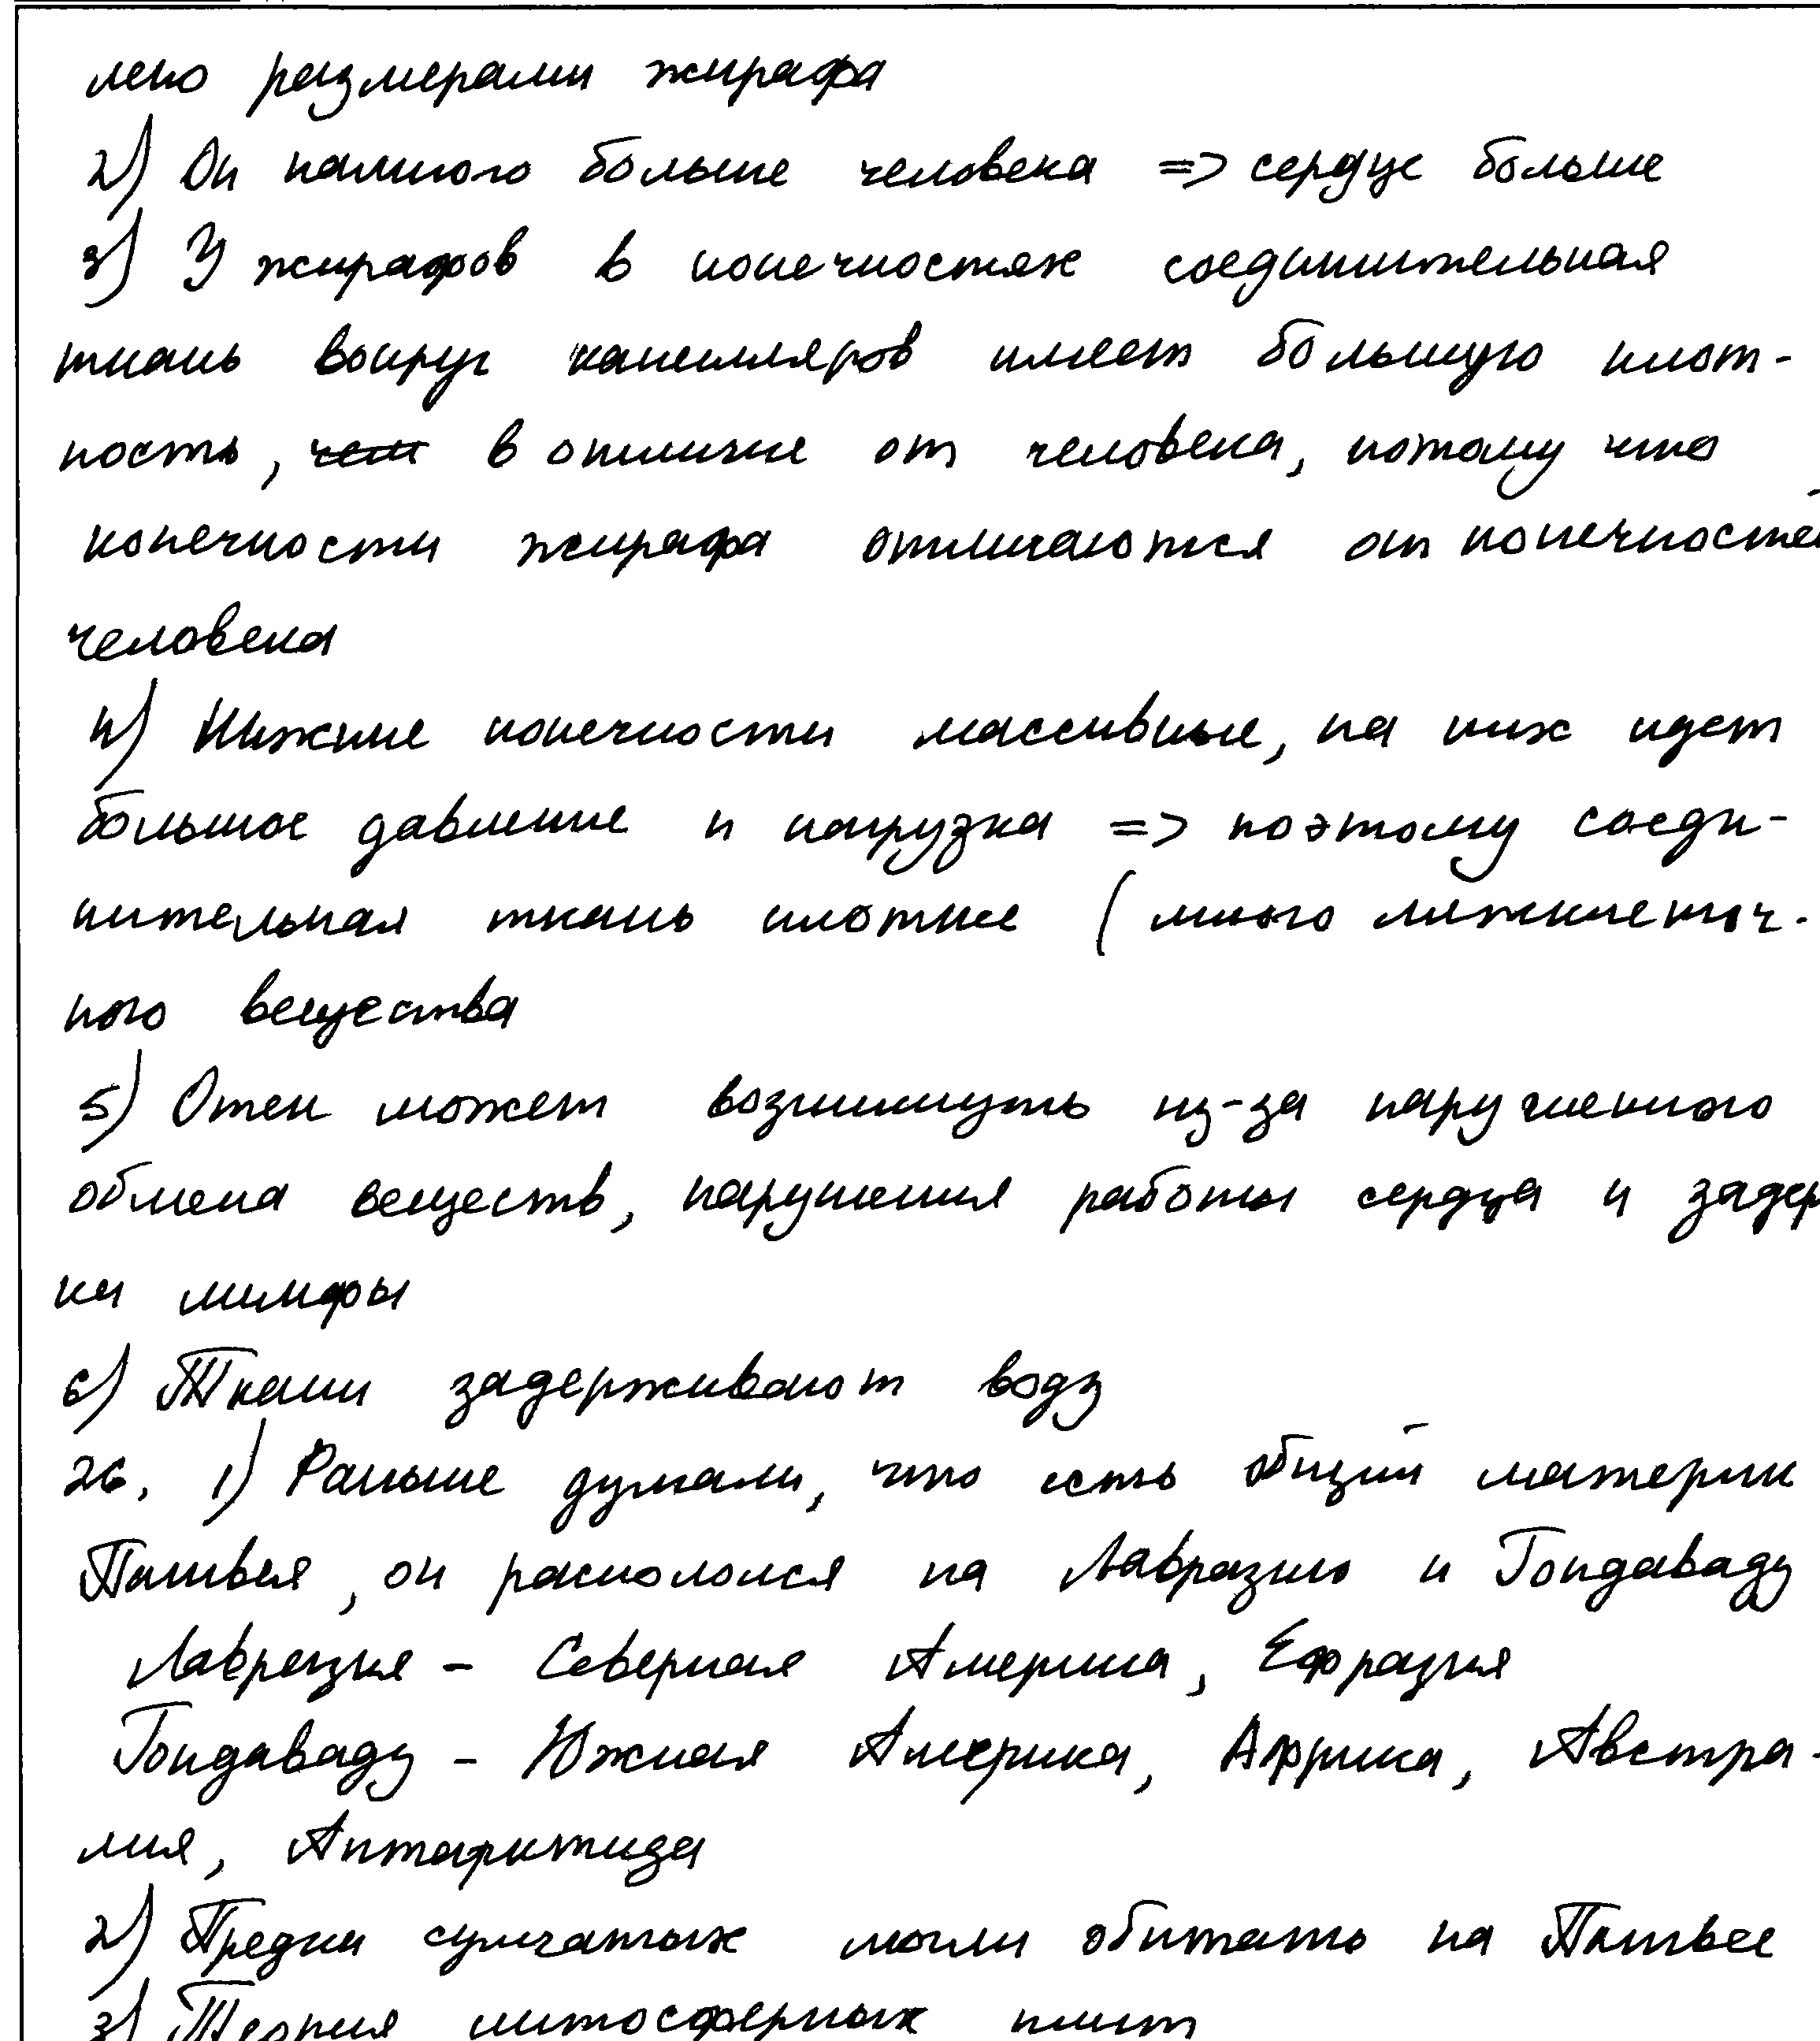 лено размерами жирафа
2) Он намного больше человека => сердце больше
3) У жирафов в конечностях соединительная
ткань вокруг капилляров имеет большую плот-
ность, чем в отличие от человека, потому что
конечности жирафа отличаются от конечностей
человека
4) Нижние конечности массивные, на них идет
большое давление и нагрузка => поэтому соеди-
нительная ткань плотнее (много межклеточ-
ного вещества
5) Отек может возникнуть из-за нарушенного
обмена веществ, нарушения работы сердца и задер
ки лимфы
6) Ткани задерживают воду
26. 1) Раньше думали, что есть общий материк
, он раскололся на Лавразию и Гондаваду
Лавразия - Северная Америка, Ефразия
Гондаваду - Южная Америка, Африка, Австра-
лия, Антарктида
2) Предки сумчатых могли обитать на
3) Теория литосферных плит